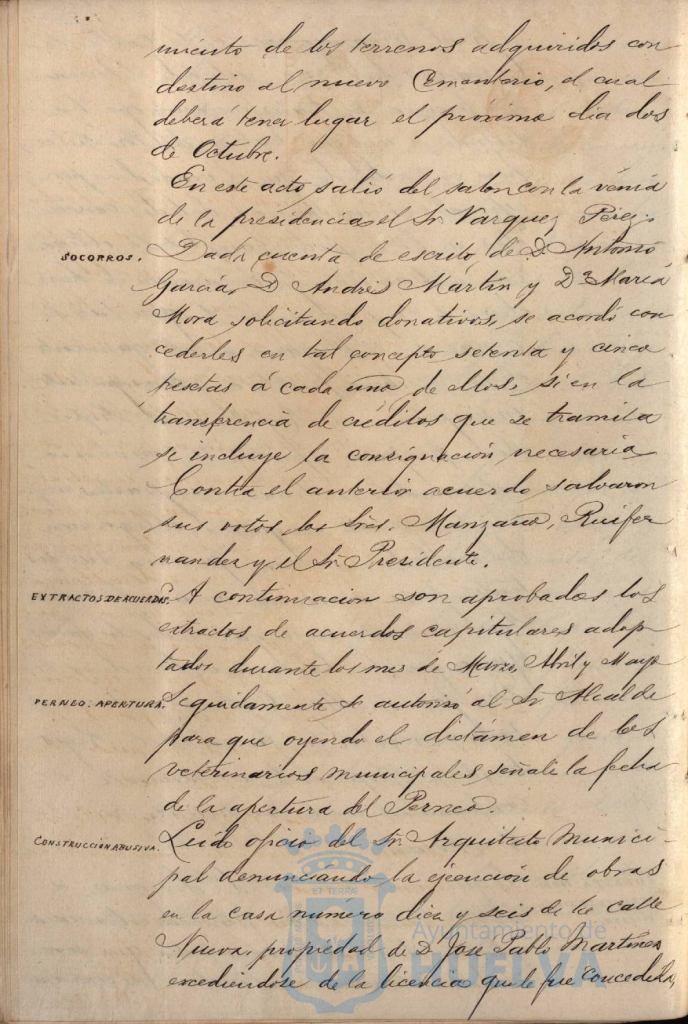 miento de los terrenos adquiridos con
destino al nuevo Cementerio, el cual
deberá tener lugar el próximo dia dos
de Octubre.
En este acto salió del salon con la vénia
de la presidencia el Sr. Vazquez Perez.
SOCORROS.
Dada cuenta de escrito de D. Antonio
García, D Andrés Martin y Dª Maria
Mora solicitando donativos, se acordó con
cederles en tal concepto setenta y cinco
pesetas á cada uno de ellos, si en la
transferencia de créditos que se tramita
se incluye la consignación necesaria
Contra el anterior acuerdo salvaron
sus votos los Sres. Manzano, Ruifer
nandez y el Sr. Presidente.
EXTRACTOS DE ACUERDOS.
A continuacion son aprobados los
extractos de acuerdos capitulares adop
tados durante los mes de Marzo, Abril y Mayo
PERNEO. APERTURA.
Seguidamente se autorizó al Sr. Alcalde
para que oyendo el dictámen de los
veterinarios municipales señale la fecha
de la apertura del Perneo.
CONSTRUCCIÓN ABUSIVA.
Leido oficio del Sr. Arquitecto Munici-
pal denunciando la ejecución de obras
en la casa número diez y seis de la calle
Nueva, propiedad de D. José Pablo Martinez
excediendose de la licencia que le fue concedida,
Ayuntamiento de
HUELVA